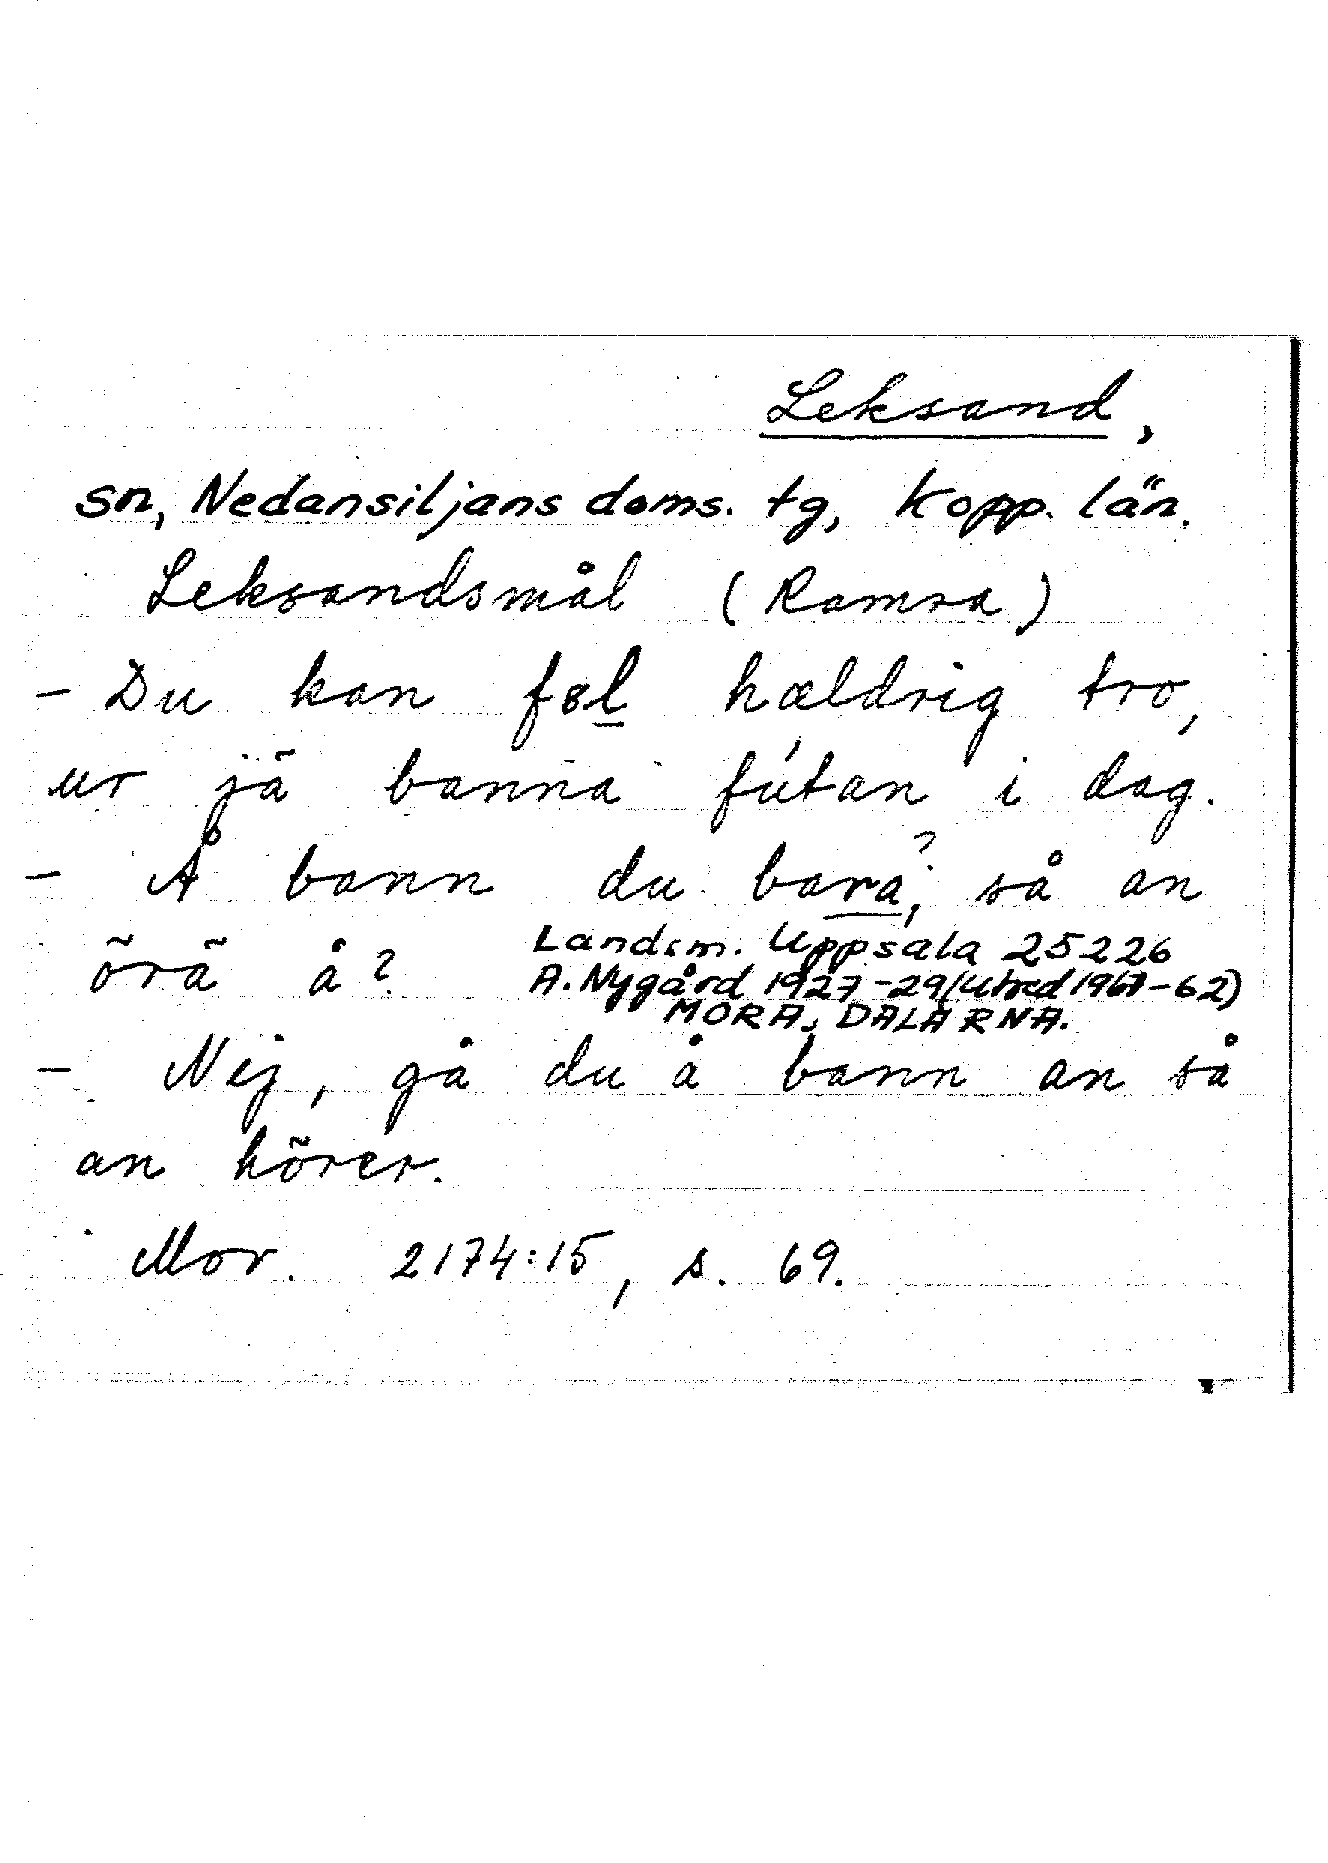 Leksand,
sn, Nedansiljans doms. tg, Kopp. län.
Leksandsmål (Ramsa)
- Du kan føl hældrig tro,
ur jä̃ banna fútan i dag.
- Å bann du bara, ? så an
õrã å?
Landsm. Uppsala 25226
A. Nygård 1927-29 (utred 1961-62)
MORA, DALARNA.
- Nej, gå du å bann an så
an hõrer.
Mor. 2174:15, s. 69.